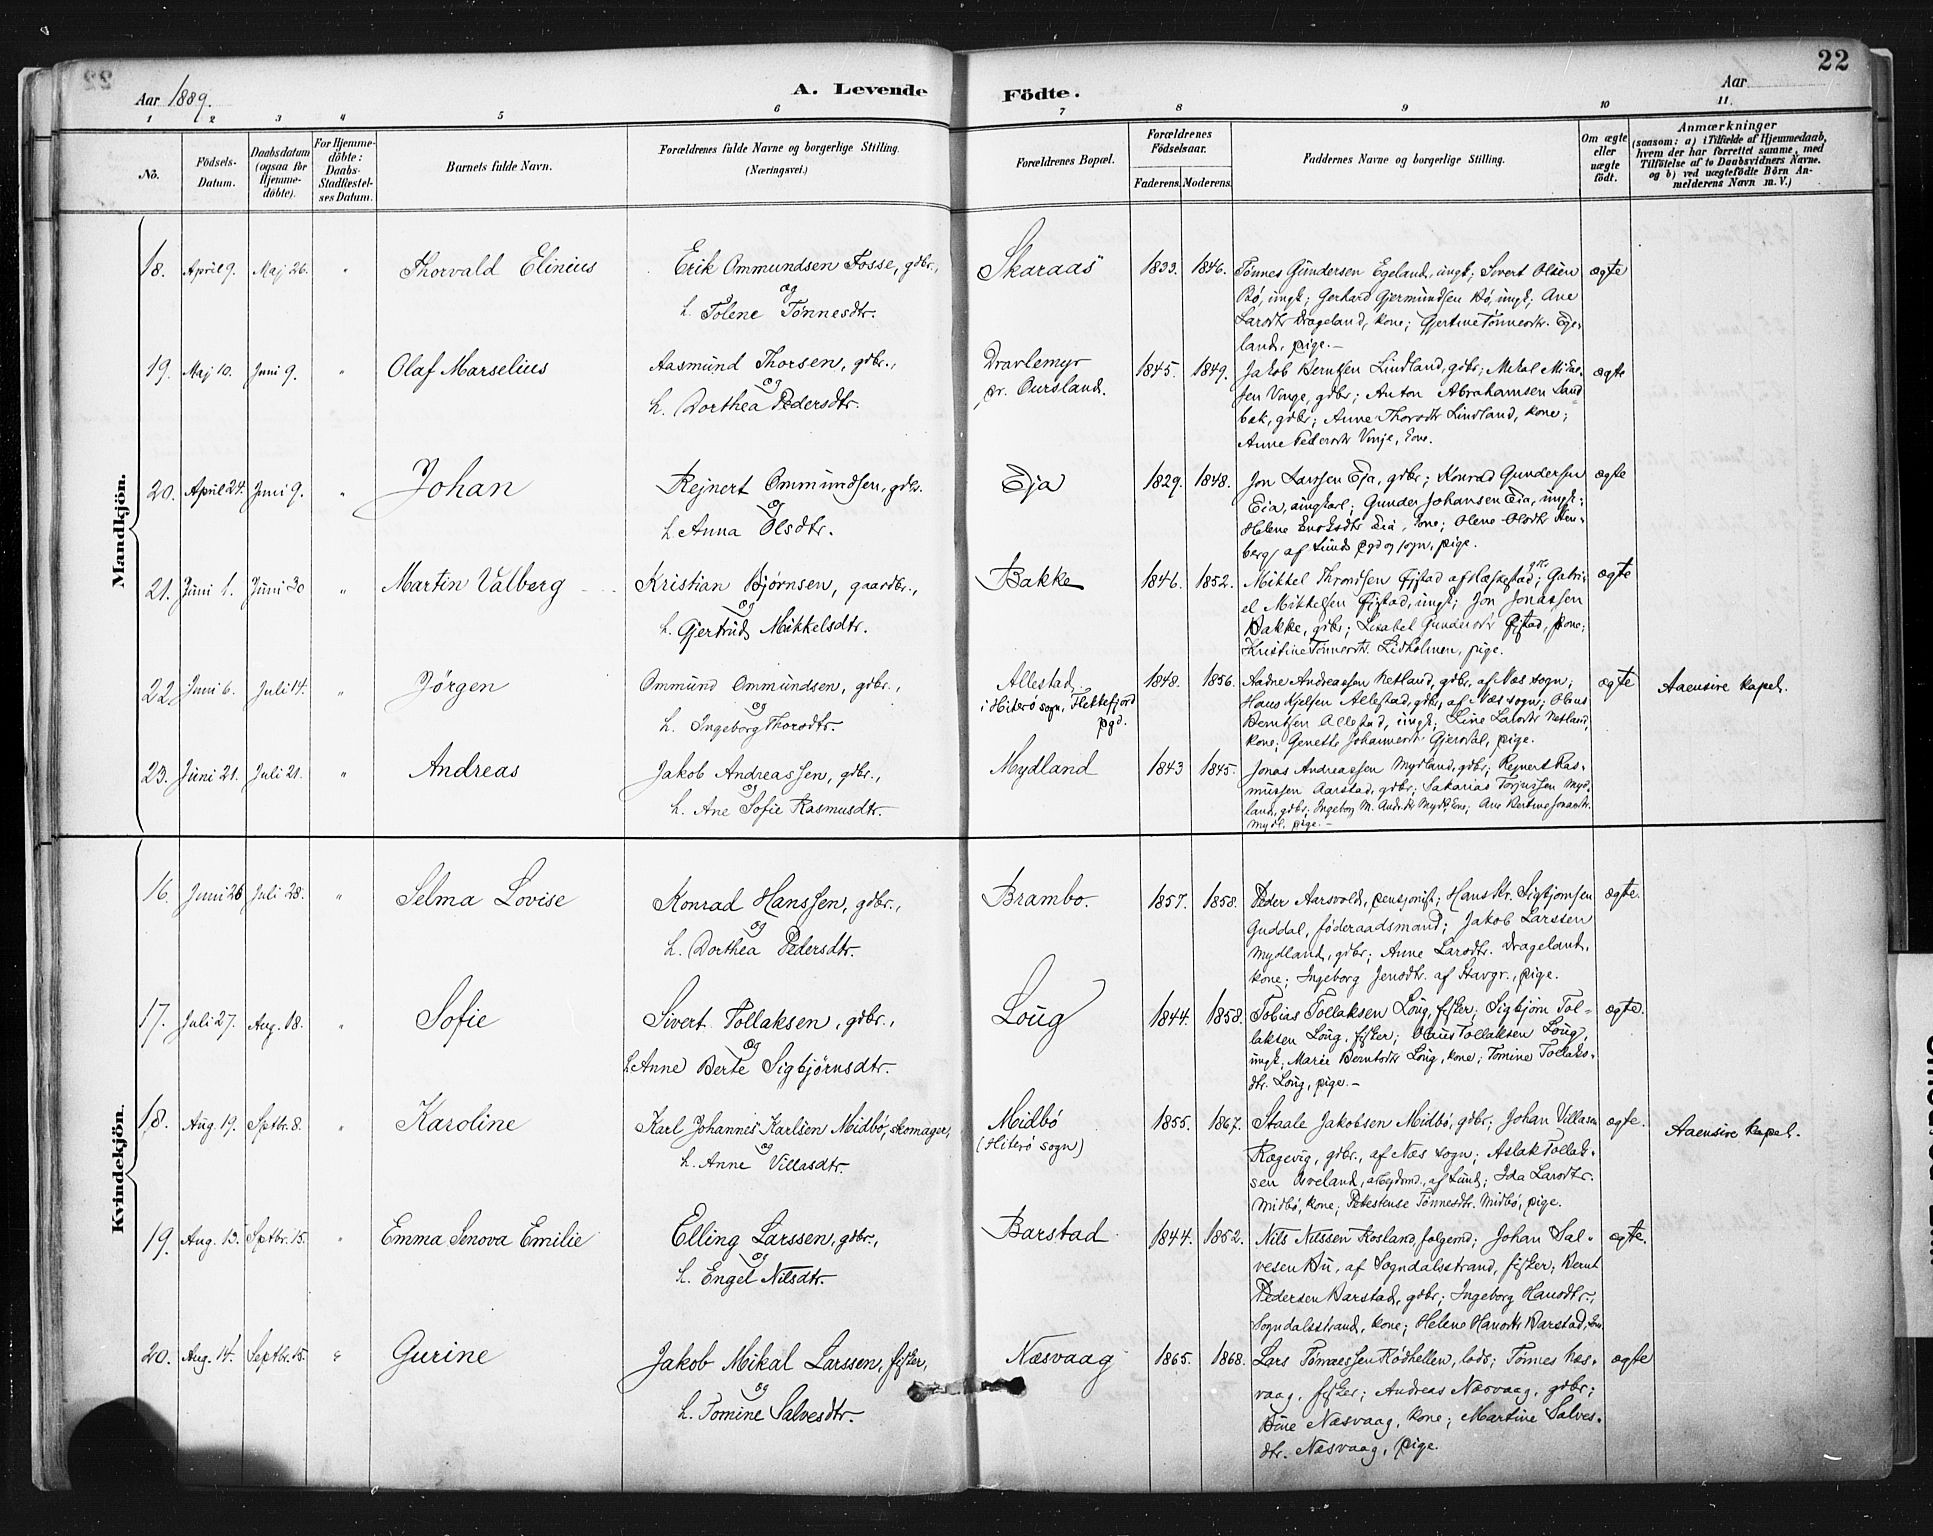 22
Aar 1889.
A. Levende Födte.
Aar
1 2 3 4 5 6 7 8 9 10 11.
No.
Födsels-Datum.
Daabsdatum (ogsaa for Hjemme-döbte).
For Hjemme-döbte: Daabs-Stadfæstel-ses Datum.
Barnets fulde Navn.
Forældrenes fulde Navne og borgerlige Stilling. (Næringsvei.)
Forældrenes Bopæl.
Forældrenes Födselsaar.
Faderens. Moderens.
Faddernes Navne og borgerlige Stilling.
Om ægte eller uægte födt.
Anmærkninger
(saasom: a) i Tilfælde af Hjemmedaab,
hvem der har forrettet samme, med
Tilföielse af to Daabsvidners Navne.
og b) ved uægtefödte Börn An-
melderens Navn m. V.)
Mandkjön.
18. April 9. Maj 26. " Thorvald Elinius Erik Ommundsen Fosse, gdbr., og h. Tolene Tønnesdtr. Skaraas 1833. 1846. Tønnes Gundersen Egeland, ungk; Sivert Olsen ægte
Bø, ungk; Gerhard Gjermundsen Bø, ungk; Ane
Larsdtr Drageland, kone; Gjertine Tønnesdtr. Ege-
land, pige.-
19. Maj 10. Juni 9. " Olaf Marselius Aasmund Thorsen, gdbr., og h. Dorthea Pedersdtr. Dravlemyr pr. Oursland. 1845. 1849. Jakob Berntsen Lindland, gdbr; Mikal Mikal- ægte
sen Vinge, gdbr; Anton Abrahamsen Sand
bæk, gdbr; Anne Thorsdtr Lindland, kone;
Anne Pedersdtr Vinje, kone.
20. April 24. Juni 9. " Johan Rejnert Ommundsen, gdbr. og h. Anna Olsdtr. Eja 1829. 1848. Jon Larsen Eja, gdbr; Konrad Gundersen ægte
Eia, ungkarl; Gunder Johansen Eia, ungk;
Helene Eia, kone; Olene Olsdtr Hen-
berg af Lunds pgd og sogn, pige.
21. Juni 1. Juni 30 " Martin Valberg Kristian Bjørnsen, gaardbr., og h. Gjertrud Mikkelsdtr. Bakke 1846. 1852. Mikkel Thronsen Gystad af Hæskestad, gdbr; Gabri- ægte
el Mikkelsen Gystad, ungk; Jon Jonassen
Bakke, gdbr; Lisabet Gundersdtr Gystad, kone;
Kristine Tønnesdtr. Lidholmen, pige.
22. Juni 6. Juli 14. " Jörgen Ommund Ommundsen, gdbr., og h. Ingeborg Thorsdtr. Allestad i Hiterö sogn, Flekkefjord pgd. 1848. 1856. Aadne Andreassen Netland, gdbr, af Næs sogn; ægte Aaensire kapel.
Hans Kjelsen Allestad, gdbr, af Næs sogn;
Berntsen Allestad, ungk; Line Larsdtr Netland,
kone; Genette Johannesdtr Gjersdal, pige.
23. Juni 21. Juli 21. " Andreas Jakob Andreassen, gdbr., og h. Ane Sofie Rasmusdtr. Mydland 1843 1845. Jonas Andreassen Mydland, gdbr; Rejnert Ras-
mussen Aarstad, gdbr; Sakarias Torjussen Myd-
land, gdbr; Ingeborg M. Andr.dtr Mydl., kone; Ane Bertine Jonasdtr.
Mydl. pige.-
Kvindekjön.
16. Juni 26 Juli 28. " Selma Lovise Konrad Hanssen, gdbr., og h. Dorthea Pedersdtr. Brambo. 1857. 1858. Peder Aarsvold, pensjonist; Hans Kr. Sigbjørnsen ægte.
Guddal, føderaadsmand; Jakob Larssen
Mydland, gdbr; Anne Larsdtr. Drageland,
kone; Ingeborg Jensdtr. af Stavgr., pige.
17. Juli 27. Aug. 18. " Sofie Sivert Tollaksen, gdbr., og h. Anne Berte Sigbjørnsdtr. Loug 1844. 1858. Tobias Tollaksen Loug, fisker; Sigbjørn Tol- ægte.
laksen Loug, fisker; Hans Tollaksen Loug,
ungk; Marie Berntsdtr Loug, kone; Tomine Tollaks-
dtr. Loug, pige.-
18. Aug. 19. Septbr. 8. " Karoline Karl Johannes Karlsen Midbö, skomager, og h. Anne Villasdtr. Midbö (Hiterö sogn) 1855. 1867. Staale Jakobsen Midbö, gdbr; Johan Villasen ægte. Aaensire kapel.
Rægevig, gdbr., af Næs sogn; Aslak Tollak-
sen Osveland, arbejdsmd., af Lund; Ida Larsdtr.
Midbö, kone; Tønnesdtr. Midbö, pige.
19. Aug. 13. Septbr. 15. " Emma Senova Emilie Elling Larssen, gdbr., og h. Engel Nilsdtr. Barstad 1844. 1852. Nils Nilssen Rosland, folgemd; Johan Sal- ægte.
vesen Bu, af Sogndalsstrand, fisker; Bernt
Pedersen Barstad, gdbr; Ingeborg Hansdtr.,
Sogndalsstrand, kone; Helene Hansdtr Barstad, kone.
20. Aug. 14. Septbr. 15. " Gurine Jakob Mikal Larssen, fisker, og h. Tomine Salvesdtr. Næsvaag 1865. 1868. Lars Tønnessen Rödhellen, lods; Tønnes Næs- ægte
vaag, fisker; Andreas Næsvaag, gdbr;
Næsvaag, kone; Martine Salves-
dtr. Næsvaag, pige.